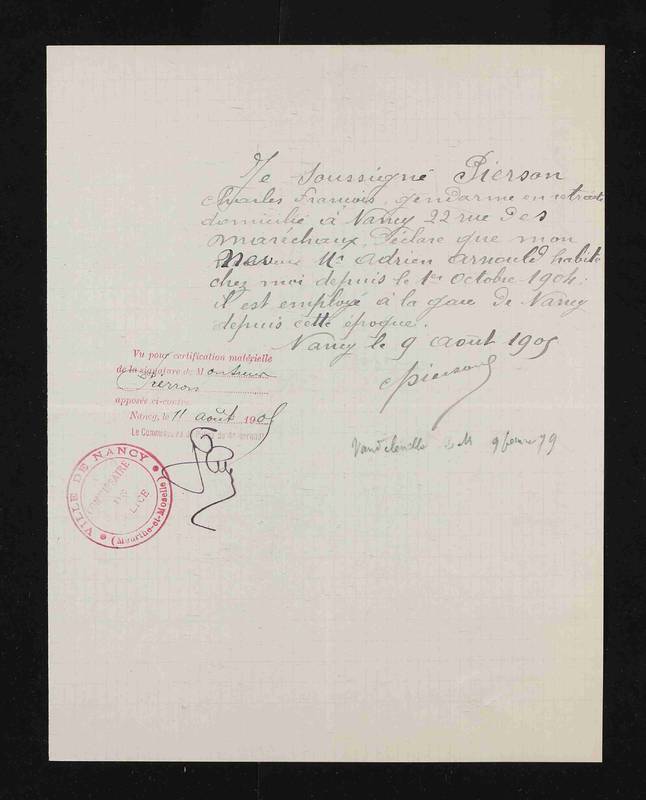 Je soussigné Pierson
Charles François, gendarme en retraite
domicilié à Nancy 22 rue des
Maréchaux, Déclare que mon
neveu Mr Adrien Arnould habite
chez moi depuis le 1er Octobre 1904.
il est employé à la gare de Nancy
depuis cette époque.
Nancy le 9 Août 1905
CPierson
Vu pour certification matérielle
de la signature de Monsieur
Pierron
apposée ci-contre
Nancy, le 11 août 1905
Le Commissaire de Police du
9 79
VILLE DE NANCY
COMMISSAIRE
DE
POLICE
(Meurthe-et-Moselle)